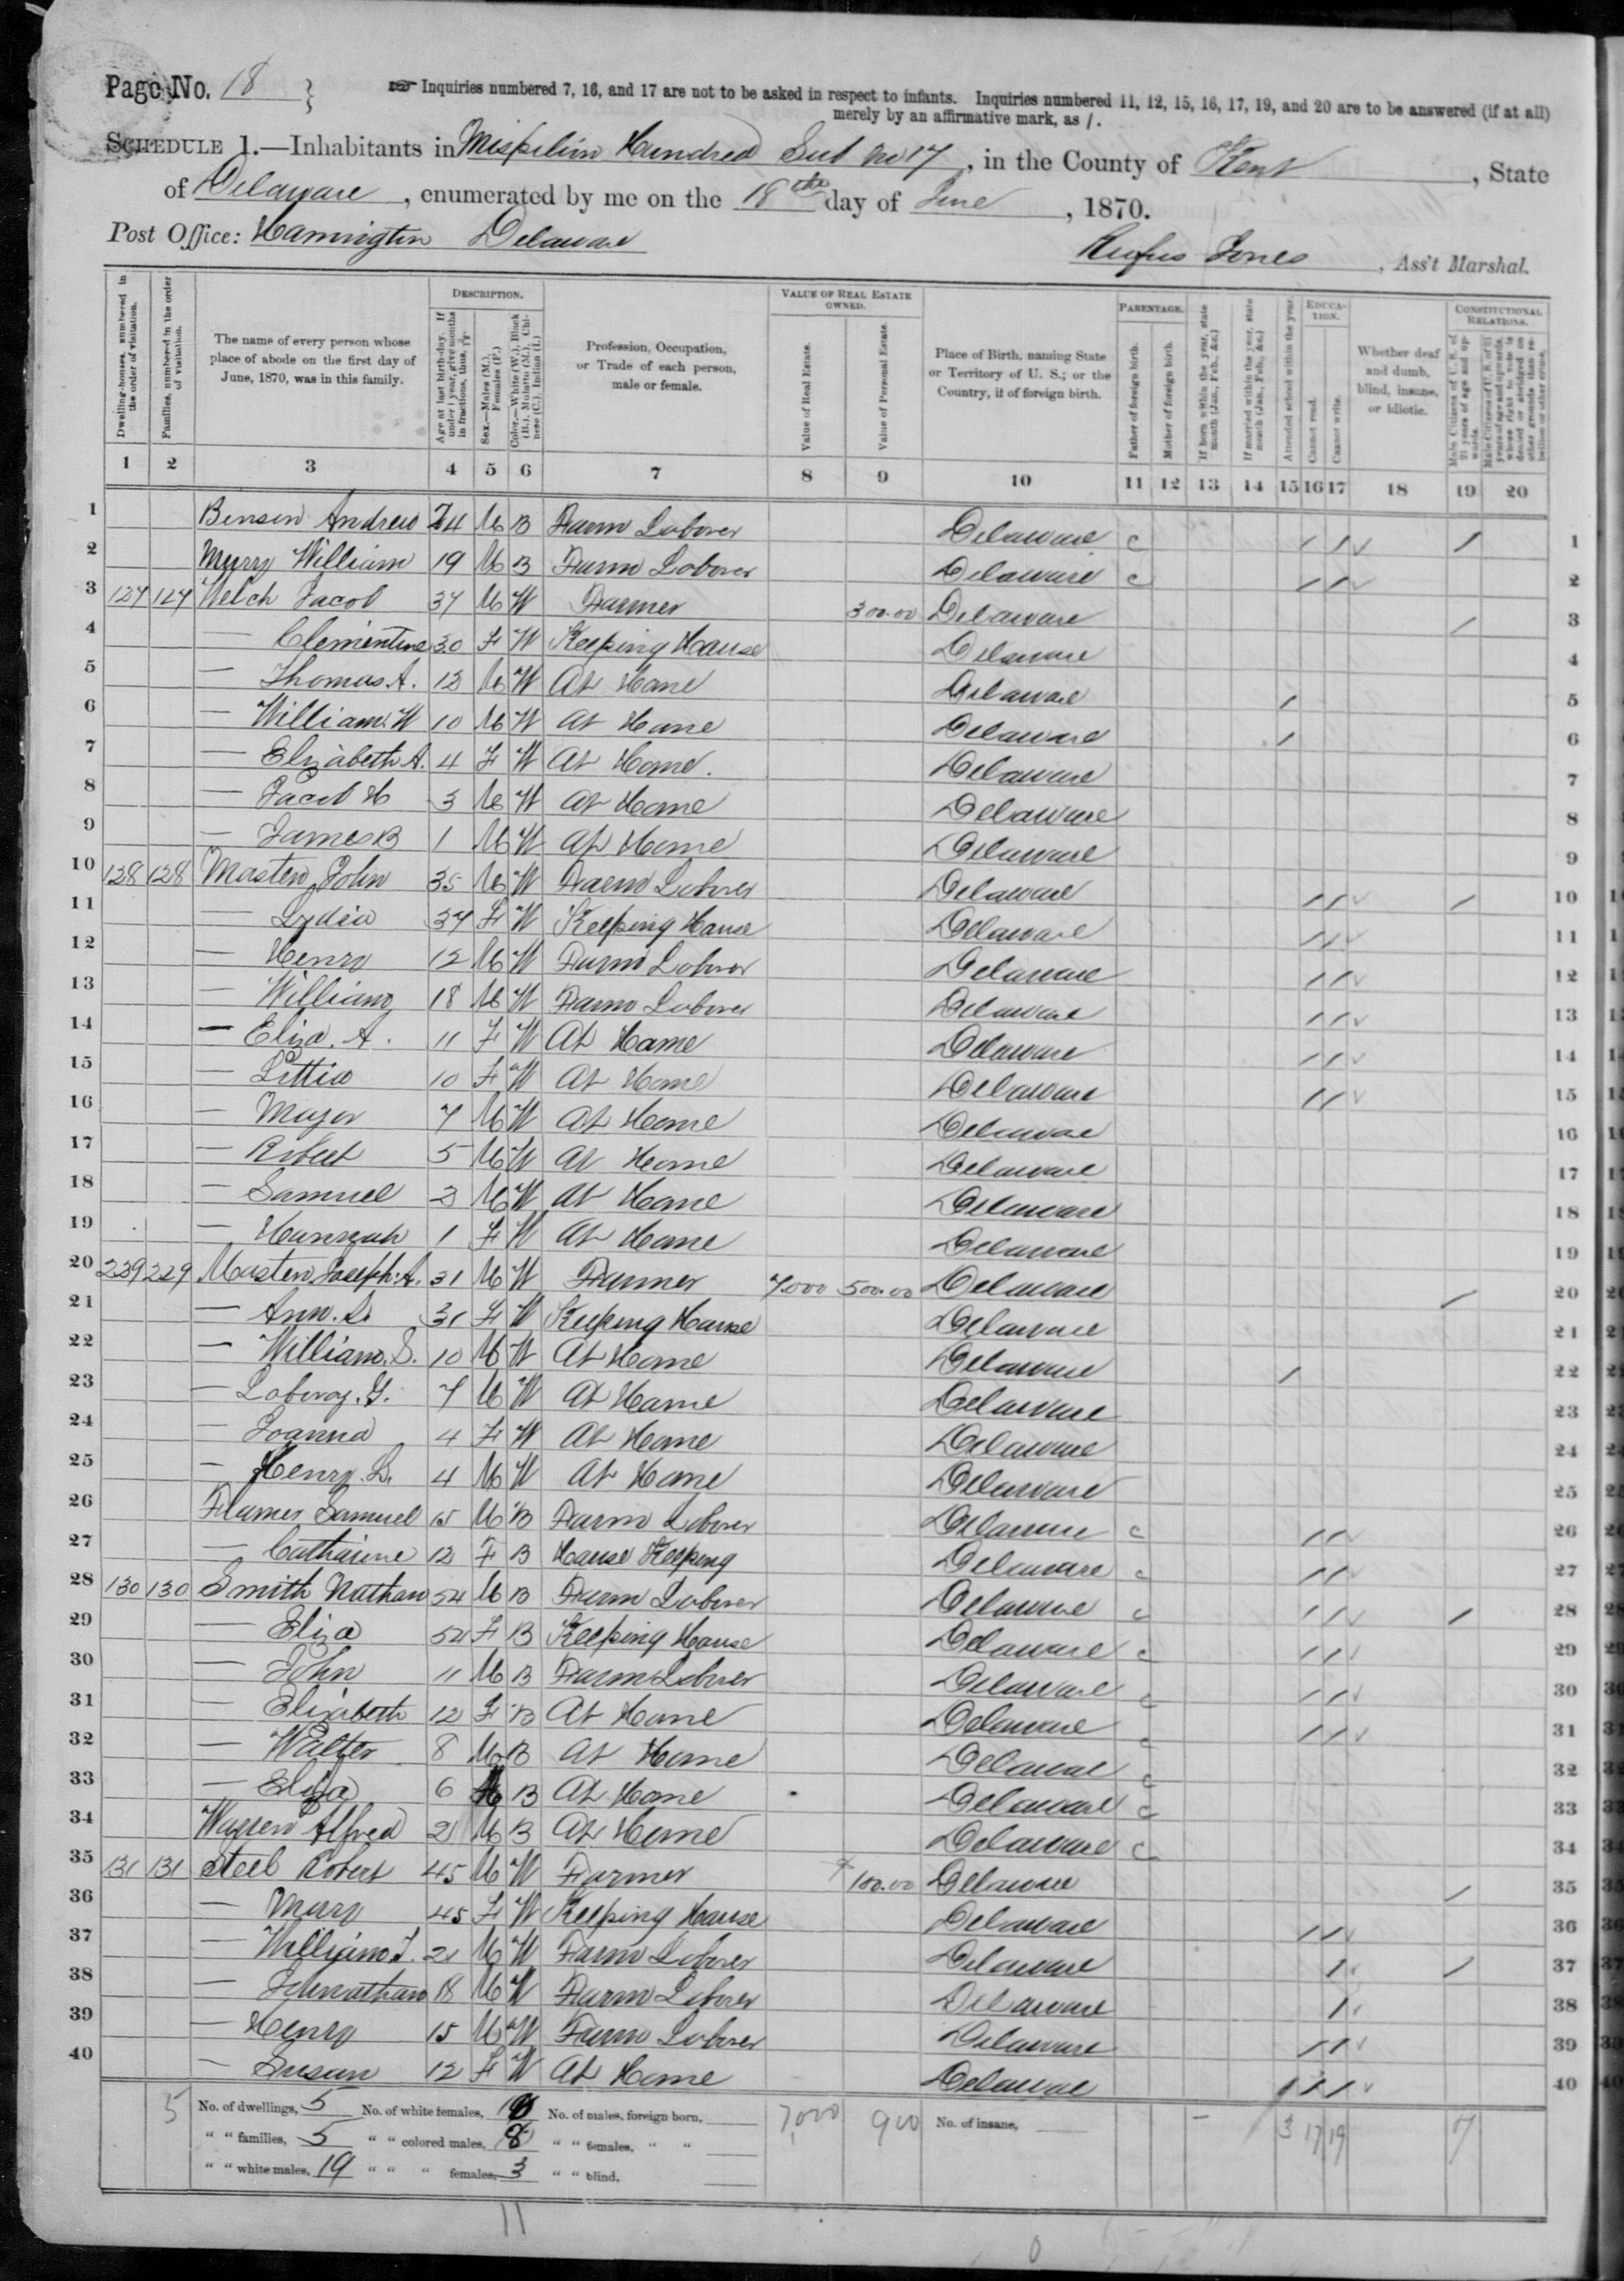 Page No. 18
☞ Inquiries numbered 7, 16, and 17 are not to be asked in respect to infants. Inquiries numbered 11, 12, 15, 16, 17, 19, and 20 are to be answered (if at all)
merely by an affirmative mark, as /.
SCHEDULE 1.—Inhabitants in Mispilion Hundred Sub No 17, in the County of Kent, State
of Delaware, enumerated by me on the 18th day of June, 1870.
Post Office: Harrington Delaware
Rufus Jones, Ass't Marshal.
Dwelling-houses, numbered in the order of visitation.
Families, numbered in the order of visitation.
The name of every person whose place of abode on the first day of June, 1870, was in this family.
DESCRIPTION.
Age at last birth-day. If under 1 year, give months in fractions, thus,
Sex.—Males (M.), Females (F.)
Color.—White (W.), Black (B.), Mulatto (M.), Chinese (C.), Indian (I.)
Profession, Occupation, or Trade of each person, male or female.
VALUE OF REAL ESTATE OWNED.
Value of Real Estate.
Value of Personal Estate.
Place of Birth, naming State or Territory of U. S.; or the Country, if of foreign birth.
PARENTAGE.
Father of foreign birth.
Mother of foreign birth.
If born within the year, state month (Jan., Feb., &c.)
If married within the year, state month (Jan., Feb., &c.)
Attended school within the year.
EDUCATION.
Cannot read.
Cannot write.
Whether deaf and dumb, blind, insane, or idiotic.
CONSTITUTIONAL RELATIONS.
Male Citizens of U. S. of 21 years of age and upwards.
Male Citizens of U. S. of 21 years of age and upwards, whose right to vote is denied or abridged on other grounds than rebellion or other crime.
1 2 3 4 5 6 7 8 9 10 11 12 13 14 15 16 17 18 19 20
1 Benson Andrew 24 M B Farm Laborer Delaware c / / ✓ / 1
2 Murry William 19 M B Farm Laborer Delaware c / / ✓ 2
3 127 127 Welch Jacob 37 M W Farmer 300.00 Delaware / 3
4 — Clementine 30 F W Keeping House Delaware 4
5 — Thomas A. 12 M W At Home Delaware / 5
6 — William W 10 M W At Home Delaware / 6
7 — Elizabeth A. 4 F W At Home. Delaware 7
8 — Jacob H 3 M W At Home Delaware 8
9 — James B 1 M W At Home Delaware 9
10 128 128 Masten John 35 M W Farm Laborer Delaware / / ✓ / 10
11 — Lydia 37 F W Keeping House Delaware / / ✓ 11
12 — Henry 12 M W Farm Laborer Delaware / / ✓ 12
13 — William 18 M W Farm Laborer Delaware / / ✓ 13
14 — Eliza. A. 11 F W At Home Delaware / / ✓ 14
15 — Littia 10 F W At Home Delaware / / ✓ 15
16 — Major 7 M W At Home Delaware 16
17 — Robert 5 M W At Home Delaware 17
18 — Samuel 2 M W At Home Delaware 18
19 — Hannah 1 F W At Home Delaware 19
20 229 229 Masten Joseph. A. 31 M W Farmer 7.000 500.00 Delaware / 20
21 — Ann. S. 31 F W Keeping House Delaware 21
22 — William. S. 10 M W At Home Delaware / 22
23 — G. 7 M W At Home Delaware 23
24 — Joanna 4 F W At Home Delaware 24
25 — Henry. L. 4 M W At Home Delaware 25
26 Flamer Samuel 15 M B Farm Laborer Delaware c / / ✓ 26
27 — Catharine 12 F B House Keeping Delaware c / / ✓ 27
28 130 130 Smith Nathan 54 M B Farm Laborer Delaware c / / ✓ / 28
29 — Eliza 54 F B Keeping House Delaware c / / ✓ 29
30 — John 11 M B Farm Laborer Delaware c / / ✓ 30
31 — Elizabeth 12 F B At Home Delaware c / / ✓ 31
32 — Walter 8 M B At Home Delaware c 32
33 — Eliza 6 M B At Home Delaware c 33
34 Warren Alfred 2 M B At Home Delaware c 34
35 131 131 Steel Robert 45 M W Farmer 100.00 Delaware / 35
36 — Mary 45 F W Keeping House Delaware / / ✓ 36
37 — William T. 21 M W Farm Laborer Delaware / / 37
38 — Johnathan 18 M W Farm Laborer Delaware / 38
39 — Henry 15 M W Farm Laborer Delaware / / ✓ 39
40 — Susan 12 F W At Home Delaware / / / ✓ 40
5 No. of dwellings, 5 No. of white females, 10 No. of males, foreign born, 7,000 900 No. of insane, – 3 17 19 7
" " families, 5 " " colored males, 8 " " females, " "
" " white males, 19 " " " females, 3 " " blind,
11
0